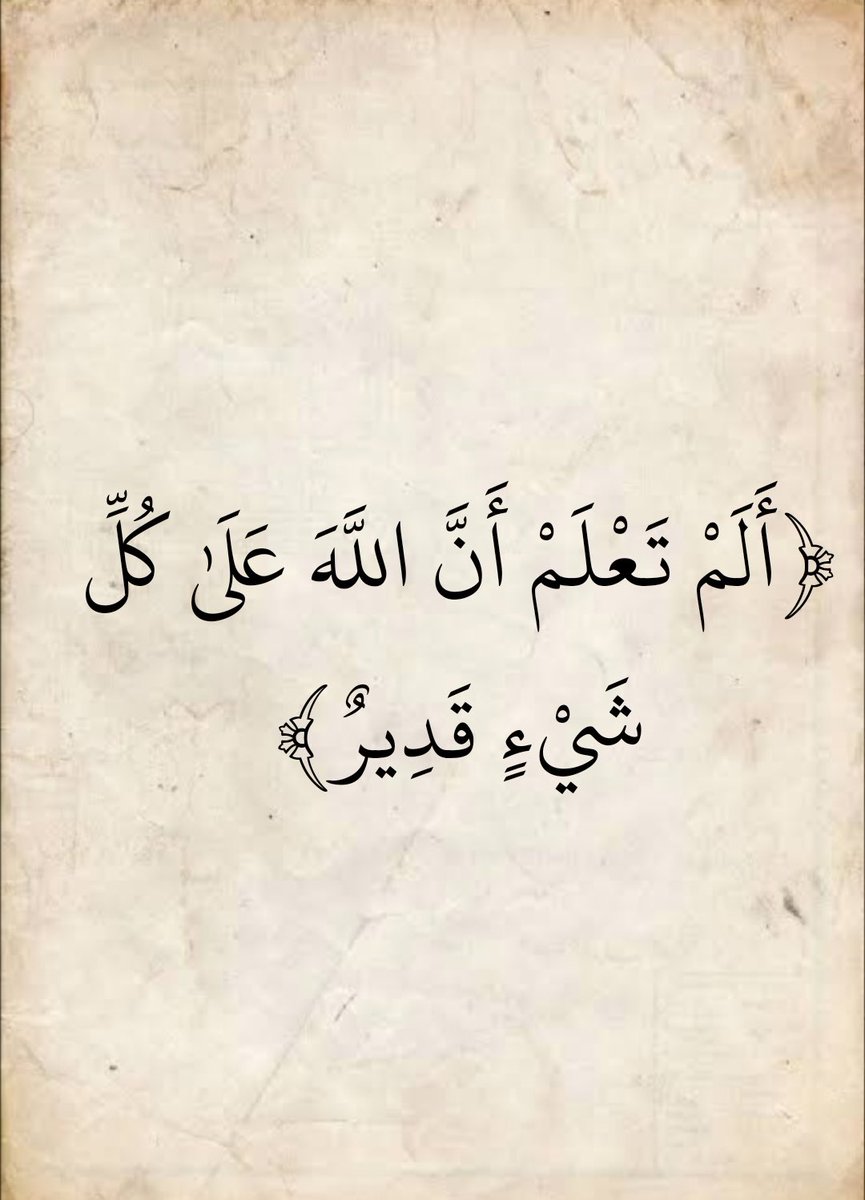 ﴿أَلَمْ تَعْلَمْ أَنَّ اللَّهَ عَلَىٰ كُلِّ
شَيْءٍ قَدِيرٌ﴾